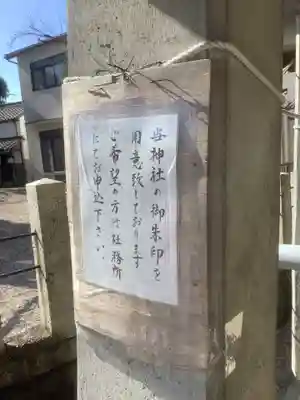 当神社の御朱印を
用意致しております
ご希望の方は社務所
にてお申込下さい。